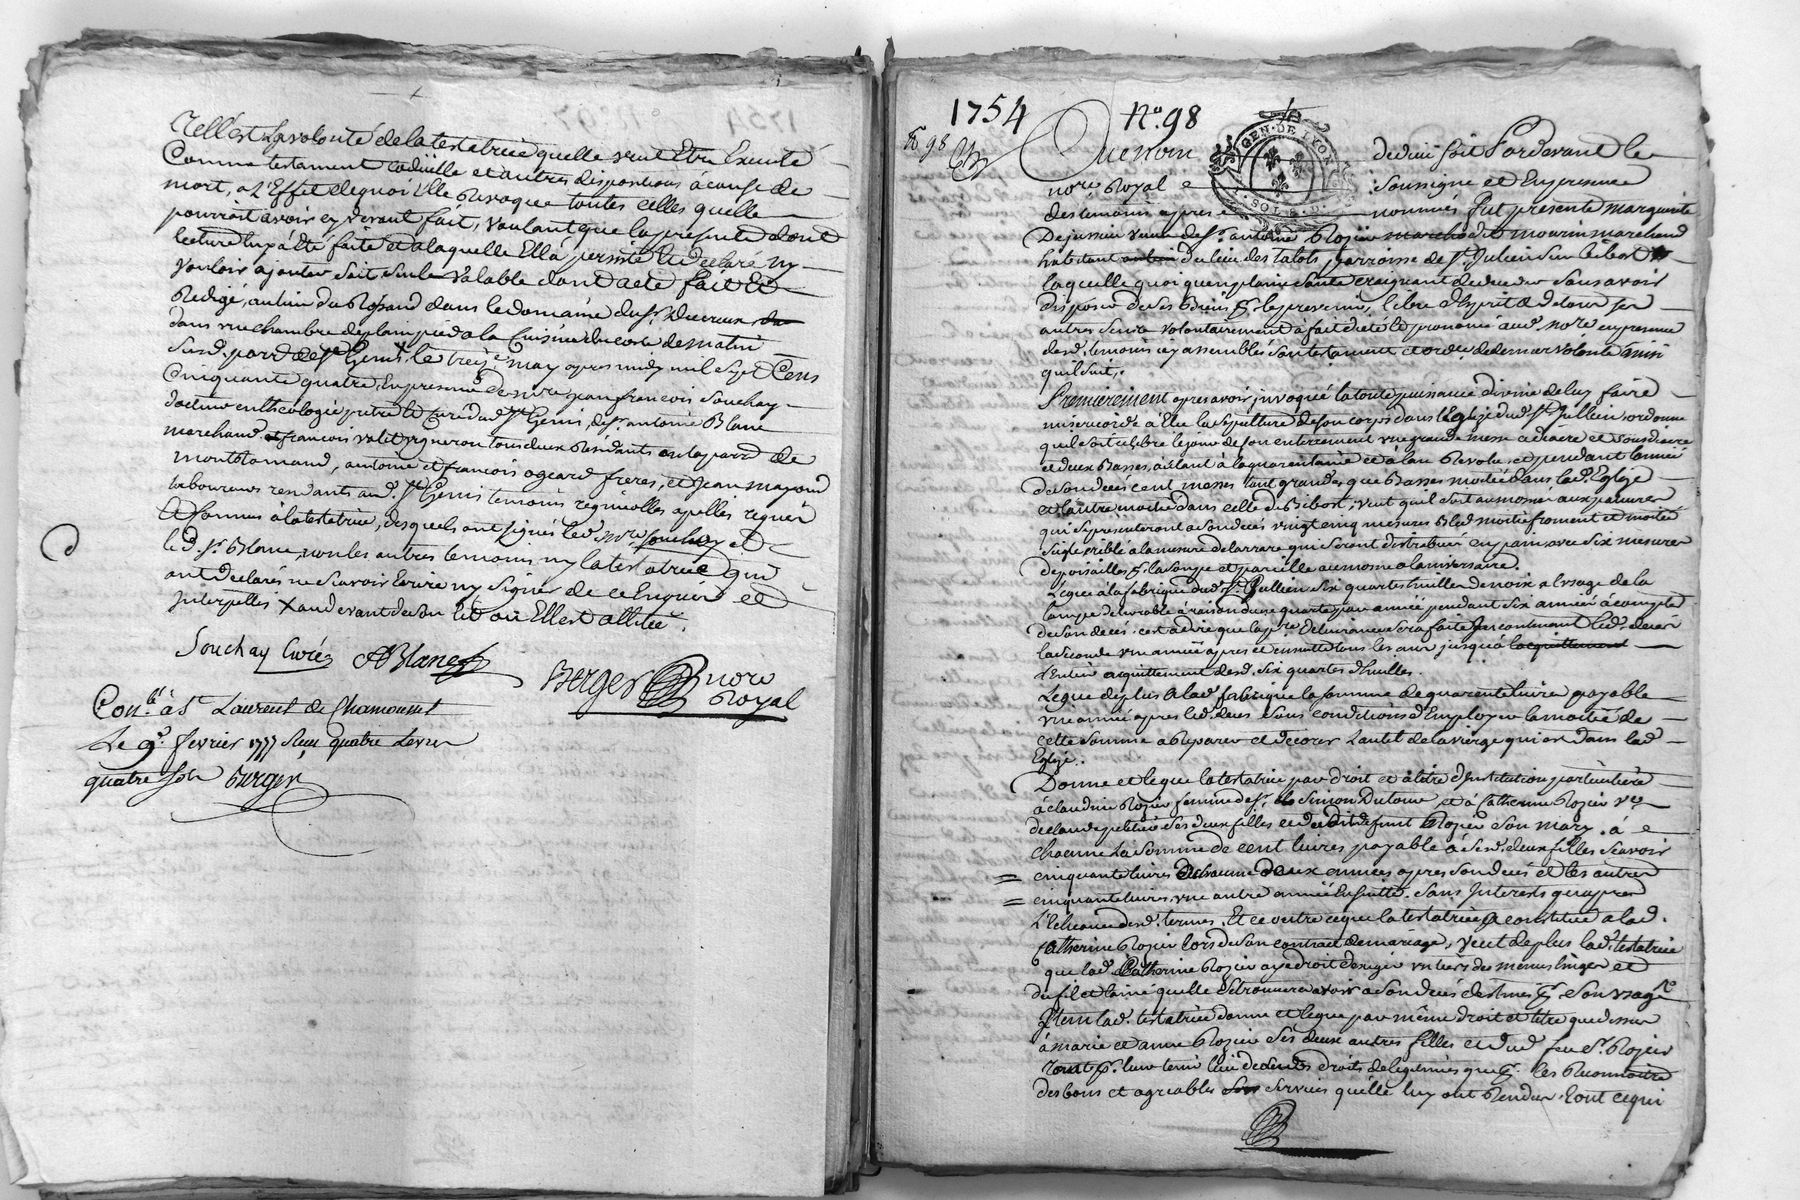 Telle est la volonté de la testatrice quelle veut Etre Executé
Comme testament codicille et autres dispositions à cause de
mort, a L'Effet dequoi Elle Revoque toutes celles quelle
pourroit avoir cy devant fait, voulant que la presente dont
lecture luy a été faite et a laquelle Ell'a persisté Et declaré ny
vouloir ajouter soit seule valable dont acte fait Et
Redigé, au lieu du Rossand dans le domaine du Sr. Ducreux
dans une chambre deplainpied a la Cuisine du coté de matin
susd. parr. de St Genis le treize may apres midy mil sept Cens
Cinquante quatre, En presence de mre jean francois Souchay
docteur en theologie pretre et Curé dud. St Genis, de Sr. antoine Blanc
marchand et francois valit vigneron tous deux Residants en la parr. de
montromand, antoine et francois ogeard freres, et Jean mayoud
laboureurs residants aud. St Genis temoins regnicolles apellés requis
et connus a la testatrice, desquels ont signés led. mre souchay et
led. Sr. Blanc, non les autres temoins ny la testatrice qui
ont declarés ne scavoir Ecrire ny signer de ce Enquis et
interpellés X au devant de son lit où Ell est allitée.
Souchay Curé ABlanc
Berger nore
Royal
Con.lé à St Laurent de Chamousset
Le 9e. fevrier 1777 Reçu quatre Livres
quatre sols Berger
1754 No. 98
No 98
GEN. DE LYON
SOLS
nore Royal soussigné et En presence
des temoins apres nommés fut presente marguerite
Dejussieu veuve de Sr. antoine Rozier marchand
habitant du lieu des talots, parroisse de St. Julien sur bibost
laquelle quoi quen plaine santé craignant deceder sans avoir
disposer de ses Biens p. le prevenir, libre d'Esprit et de tous ses
autres sens volontairement a fait dicté et prononcé aud. nore en presence
desd. temoins icy assemblés son testament et ordce de derniere volonté ainsi
quil suit,
Premierement apres avoir invoqué la toute puissance divine de luy faire
misericorde à Elu la sepulture de son corps dans l'Eglize dud. St. Jullien, ordonne
quil soit celebré le jour de son enterrement une grande messe a diacre et sousdiacre
et deux Basses, autant à la quarantaine et à l'an Revolu, et pendant l'année
de son deces cent messes tant grandes que Basses moitié dans lad. Eglize
et l'autre moitié dans celle de Bibost, veut quil soit aumosné aux pauvres
qui se presenteront a son deces vingt cinq mesures Bled moitié froment et moitié
seigle criblé a la mesure de larrare qui seront distribués en pain, avec six mesures
de poisailles p. la soupe et pareille aumosne a l'aniversaire.
Legue à la fabrique dud. St. Jullien six quartes huille de noix a l'usage de la
lampe delivrable à raison d'une quarte par année pendant six années à compter
de son deces. c'est a dire que la pre. delivrance sera faite
la seconde une année apres et ensuitte tous les ans jusqu'à lacquittement
l'Entier acquittement desd. six quartes d'huilles.
Legue de plus a lad. fabrique la somme de quarente livres payable
une année apres led. deces sous conditions d'Employer la moitié de
cette somme a Reparer et decorer l'autel de la vierge qui est dans lad.
Eglize.
Donne et legue la testatrice par droit et à titre d'Institution particulière
à claudine Rozier femme de Sr. Simon Dutour et à Catherine Rozier ve.
de claude ses deux filles et dudit defunt Rozier son mary. à
chacune la somme de cent livres payable a sesd. deux filles scavoir
cinquante livres chacune deux années apres son deces et les autres
cinquante livres, une autre année Ensuitte. sans Interests qu'apres
l'Echeance desd. termes. Et ce outre ce que la testatrice a constitué a lad.
Catherine Rozier lors de son contract de mariage, veut de plus lad. testatrice
que lad. Catherine Rozier aye droit d'exiger un tiers des menus linges et
du fil et laine quelle se trouvera avoir a son deces destinés p. son usage
Item lad. testatrice donne et legue par même droit et titre que dessus
à marie et anne Rozier ses deux autres filles et dud. feu Sr. Rozier
tant p. leur tenir lieu de leurs droits de legitimes que p. les Reconnoitre
des bons et agreables services quelle luy ont Rendus. tout ce qui